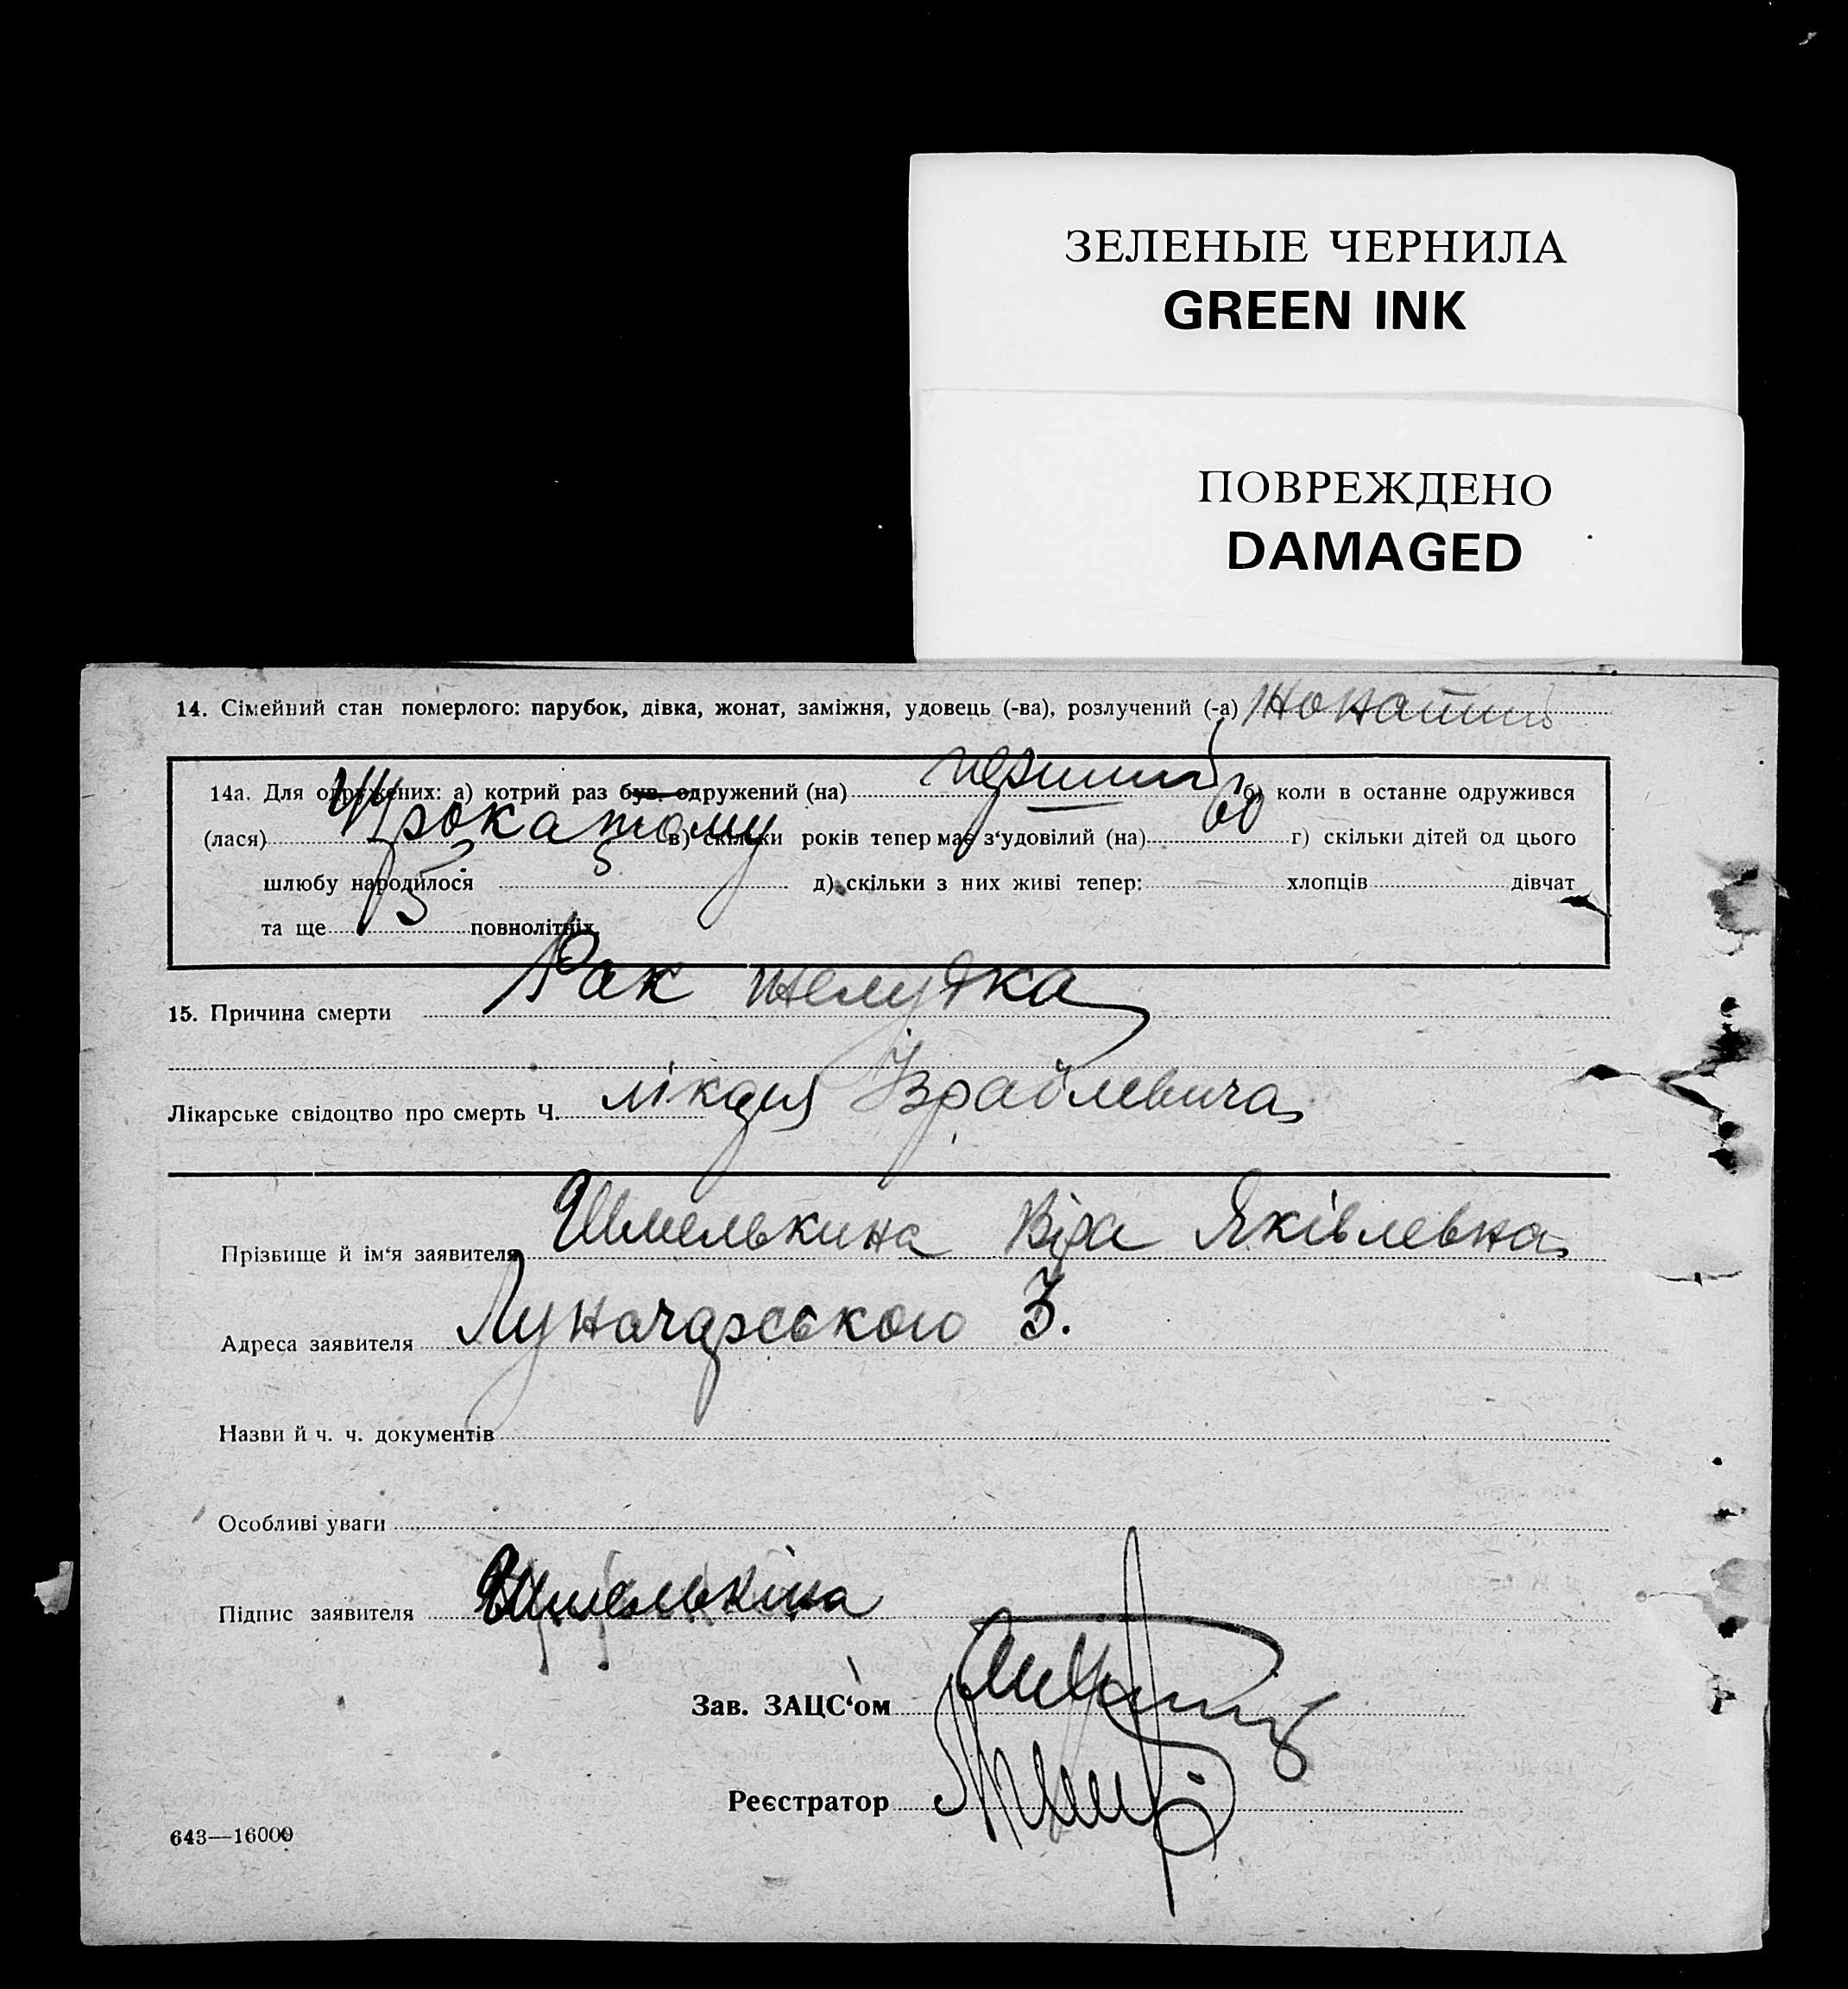 ЗЕЛЕНЫЕ ЧЕРНИЛА
GREEN INK
ПОВРЕЖДЕНО
DAMAGED
14. Сімейний стан померлого: парубок, дівка, жонат, заміжня, удовець (-ва), розлучений (-а) Жонатий
14а. Для одружених: а) котрий раз був. одружений (на) перший б) коли в останнє одружився
(лася) року тому в) скільки років тепер має з‘удовілий (на) 60 г) скільки дітей од цього
шлюбу народилося 5 д) скільки з них живі тепер: хлопців дівчат
та ще 5 повнолітніх.
15. Причина смерти Рак желудка
Лікарське свідоцтво про смерть Ч. лікаря Ізраілевича
Прізвище й ім‘я заявителя Шмелькина Віра Яківлевна
Адреса заявителя Луначарського 3.
Назви й ч. ч. документів
Особливі уваги
Підпис заявителя Шмелькіна
Зав. ЗАЦС‘ом
Реєстратор
643—16000